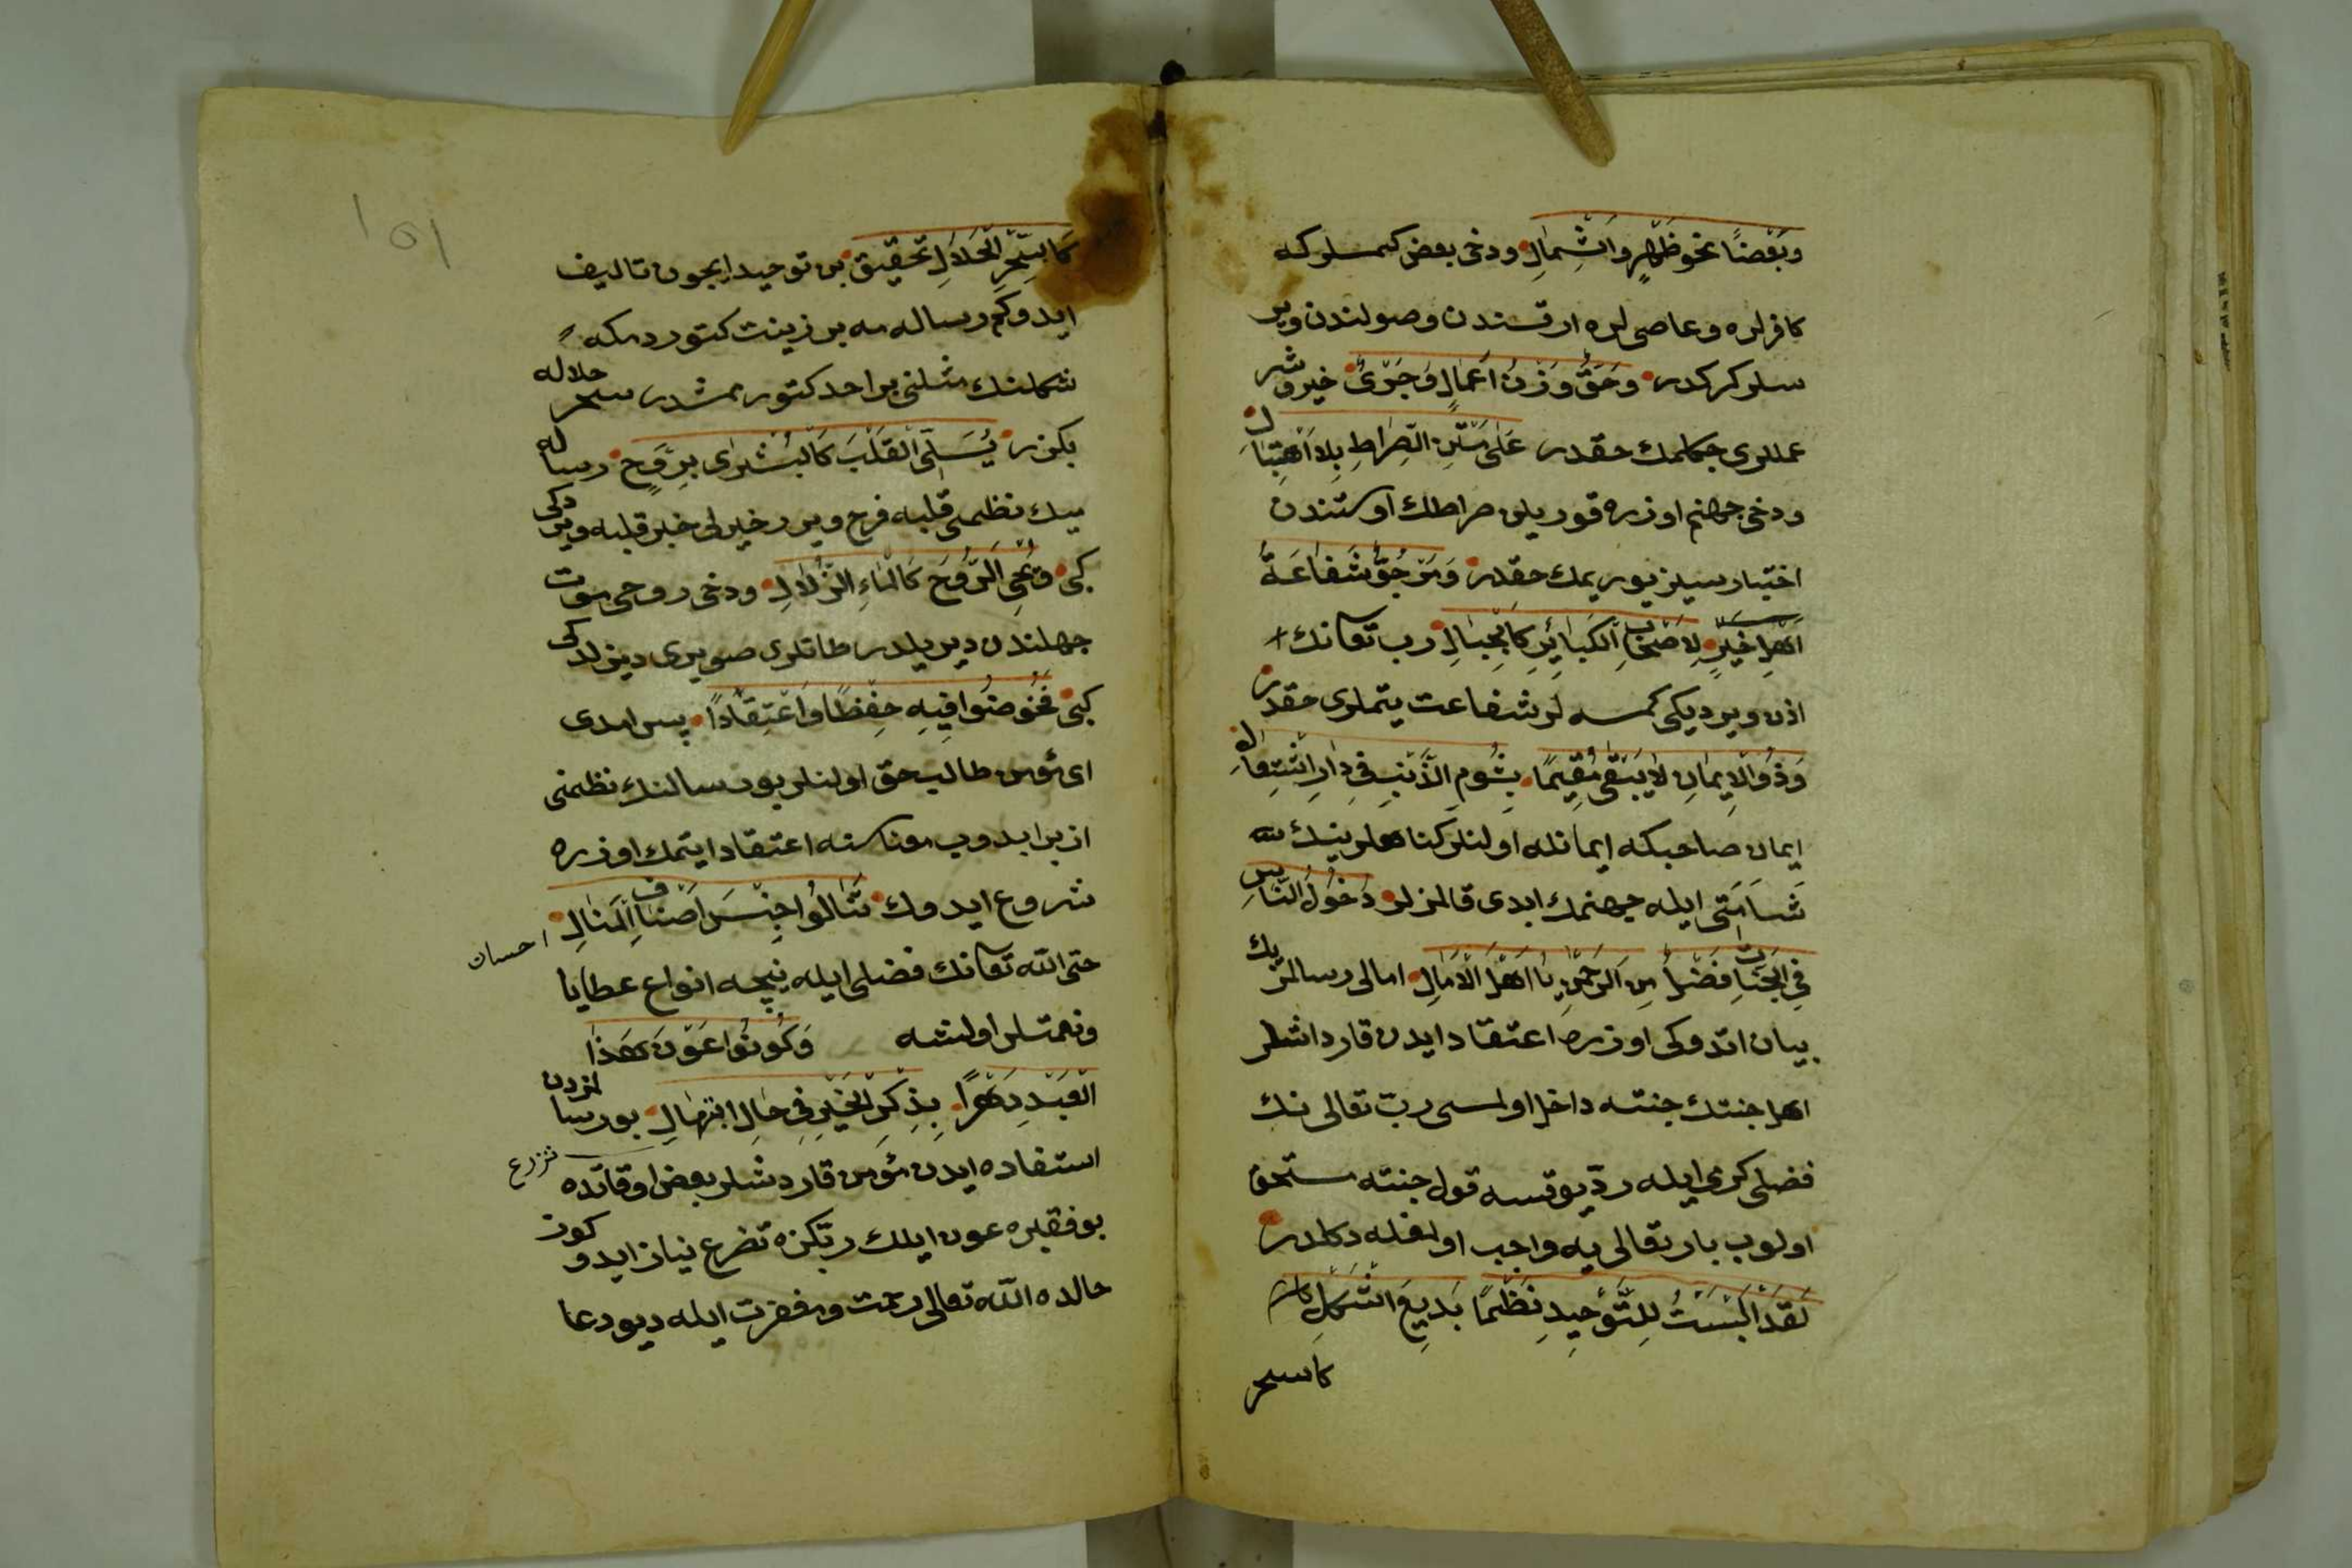 وَبَعْضًا نحوَ ظَهْرٍ وَالشِّمَالِ ودخی بعض کمسلرکه
کافرلره وعاصی لره ارقسندن وصولندن ویر
سلر کرکدر وَحَقٌّ وَزْنُ اَعْمَالٍ وَجَرْیٌ خیر وشر
عمللری چکلمك حقدر عَلٰی مَتْنِ الصِّرَاطِ بِلَا اهْتِبَالِ
ودخی جهنم اوزره قوریلن صراطك اوستندن
اختیارسیز یوریمك حقدر وَمَرْجُوٌّ شَفَاعَةُ
اَهْلِ خَيْرٍ لِاَصْحَابِ الْكَبَائِرِ كَالْجِبَالِ رب تعانك
اذن ویردیکی کمسه لر شفاعت یتملری حقدر
وَذُو الْاِيمَانِ لَا يَبْقٰى مُقِيمًا بِشُومِ الذَّنْبِ فِي دَارِ اشْتِعَالِ
ایمان صاحبکه ایمانله اولنلر کناهلرینك
شَآمَتی ایله جهنمك ابدی قالمزلر دُخُولُ النَّاسِ
فِي الْجَنَّاتِ فَضْلٌ مِنَ الرَّحْمٰنِ يَا اَهْلَ الْاَمَالِ امالی رسالمزك
بیان اتدوکی اوزره اعتقاد ایدن قارداشلر
اهل جنتك جنته داخل اولمسی ربّ تعالی نك
فضلی کرمی ایله در یوقسه قول جنته مستحق
اولوب بار تعالی یه واجب اولمغله دکلدر
لَقَدْ اَلْبَسْتُ لِلتَّوْحِيدِ نَظْمًا بَدِيعَ الشَّكْلِ
کالسحر
كَالسِّحْرِ الْحَلَالِ تحقیق بن توحید ایچون تالیف
ایدوکم رساله مه بر زینت کتوردمکه
شکلنك مثلنی بر احد کتورممشدر سحر حلاله
بکزر يُسَلِّي الْقَلْبَ كَالْبُشْرٰى بِرَوْحٍ رساله
مینك نظیمی قلبه فرح ویرر خیرلی خبر قلبه ویردکی
کبی وَيُحْيِي الرُّوحَ كَالْمَاءِ الزُّلَالِ ودخی روحی موت
جهلندن دیریلدر طاتلو صو یری دیرلدکی
کبی فَخُوضُوا فِيهِ حِفْظًا وَاعْتِقَادًا پس امدی
ای مؤمن طالب حق اولنلر بو رسالنك نظمنی
ازبر ایدوب معناسنه اعتقاد ایتمك اوزره
شروع ایدوك تَنَالُوا جِنْسَ اَصْنَافِ الْمَنَالِ
حتی الله تعانك فضلی ایله نیچه انواع عطایا
احسان
ونعمتلر اولنشه وَكُونُوا عَوْنَ هٰذَا
الْعَبْدِ دَهْرًا بِذِكْرِ الْخَيْرِ فِي حَالِ ابْتِهَالِ بو رسالمزدن
استفاده ایدن مؤمن قاردشلر بعض اوقاتده
تزرع
بو فقیره عون ایلك ربکزه تضرع نیاز ایدوکوز
حالده الله تعالی رحمت ومغفرت ایله دیو دعا
١٥١